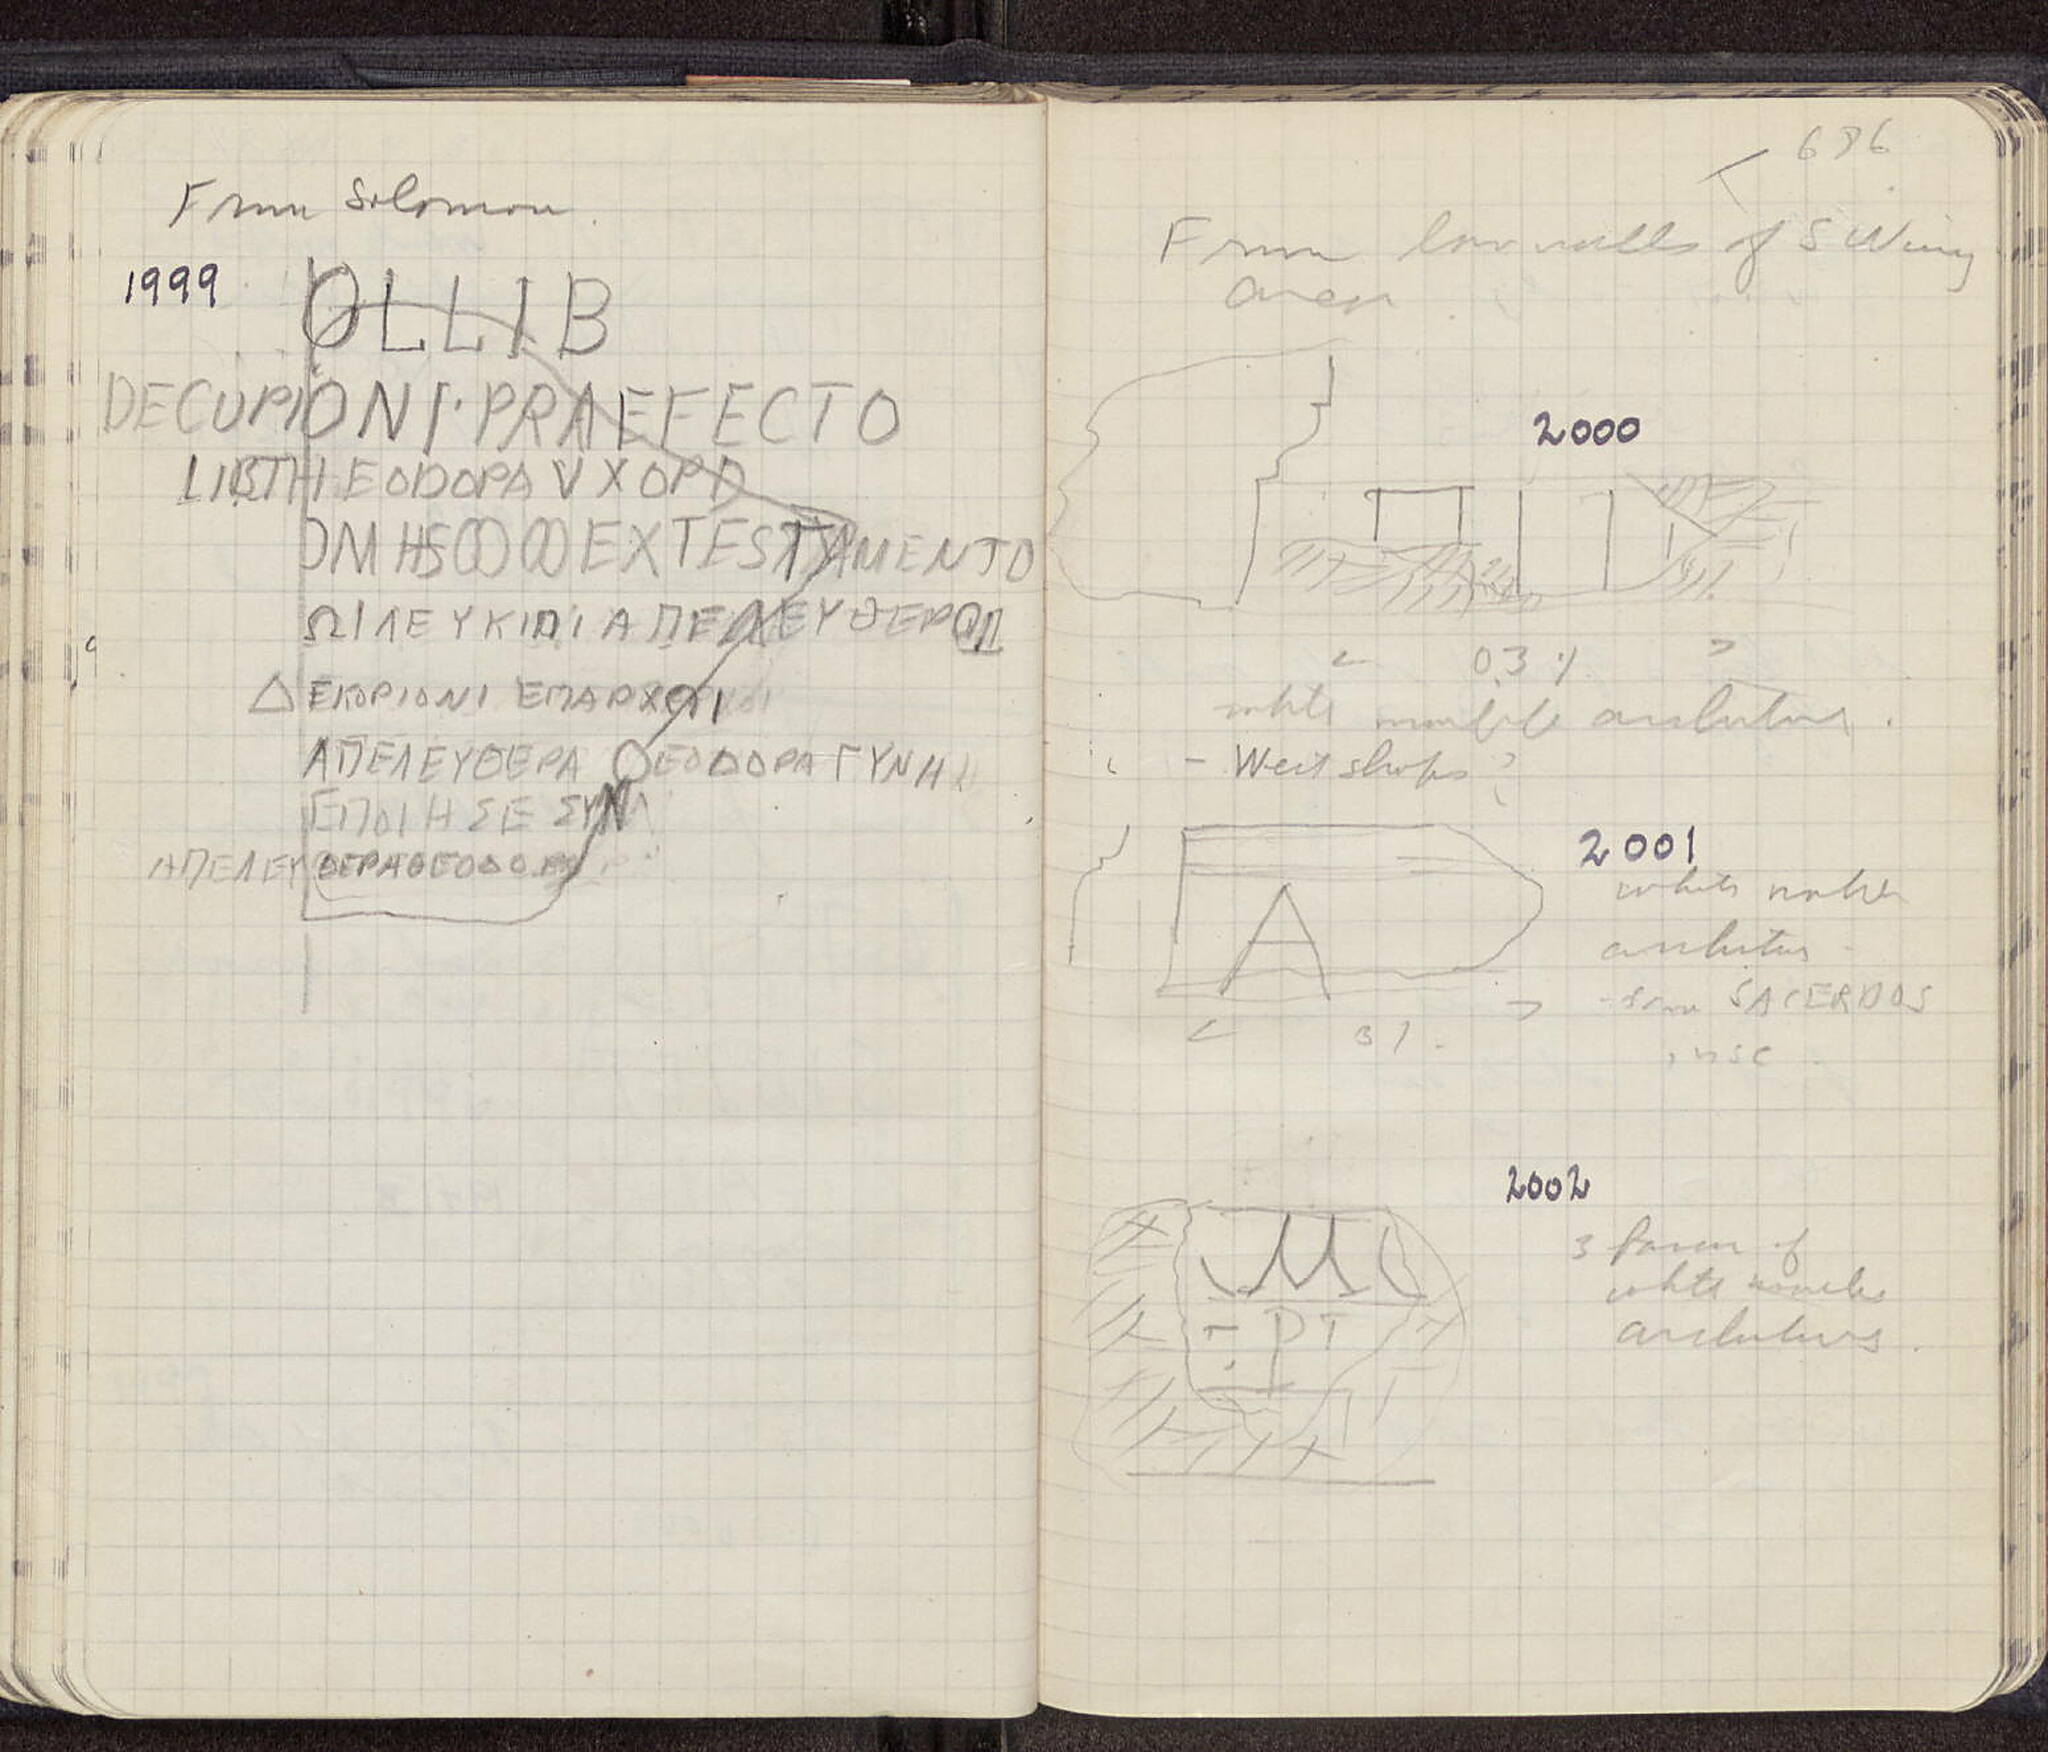 From Solomon
1999
OLLIB
DECURIONI·PRAEFECTO
LIBTHEODORA VXORD
DMHS EXTESTAMENTO
ΩΙΛΕΥΚΙΩΙ ΑΠΕΛΕΥΘΕΡΩΙ
ΔΕΚΟΡΙΩΝΙ ΕΠΑΡΧΩΙ
ΑΠΕΛΕΥΘΕΡΑ ΘΕΟΔΟΡΑ ΓΥΝΗ
ΕΠΟΙΗΣΕ ΣΥΝ
ΑΠΕΛΕΥΘΕΡΑ ΘΕΟΔΟΡΑ
686
From low walls of S Wing
Area
2000
white marble architrave.
- West shops?
2001
A
white marble
architrave
from SACERDOS
insc
31
2002
M
PT
3 fasciae of
white marble
architrave.